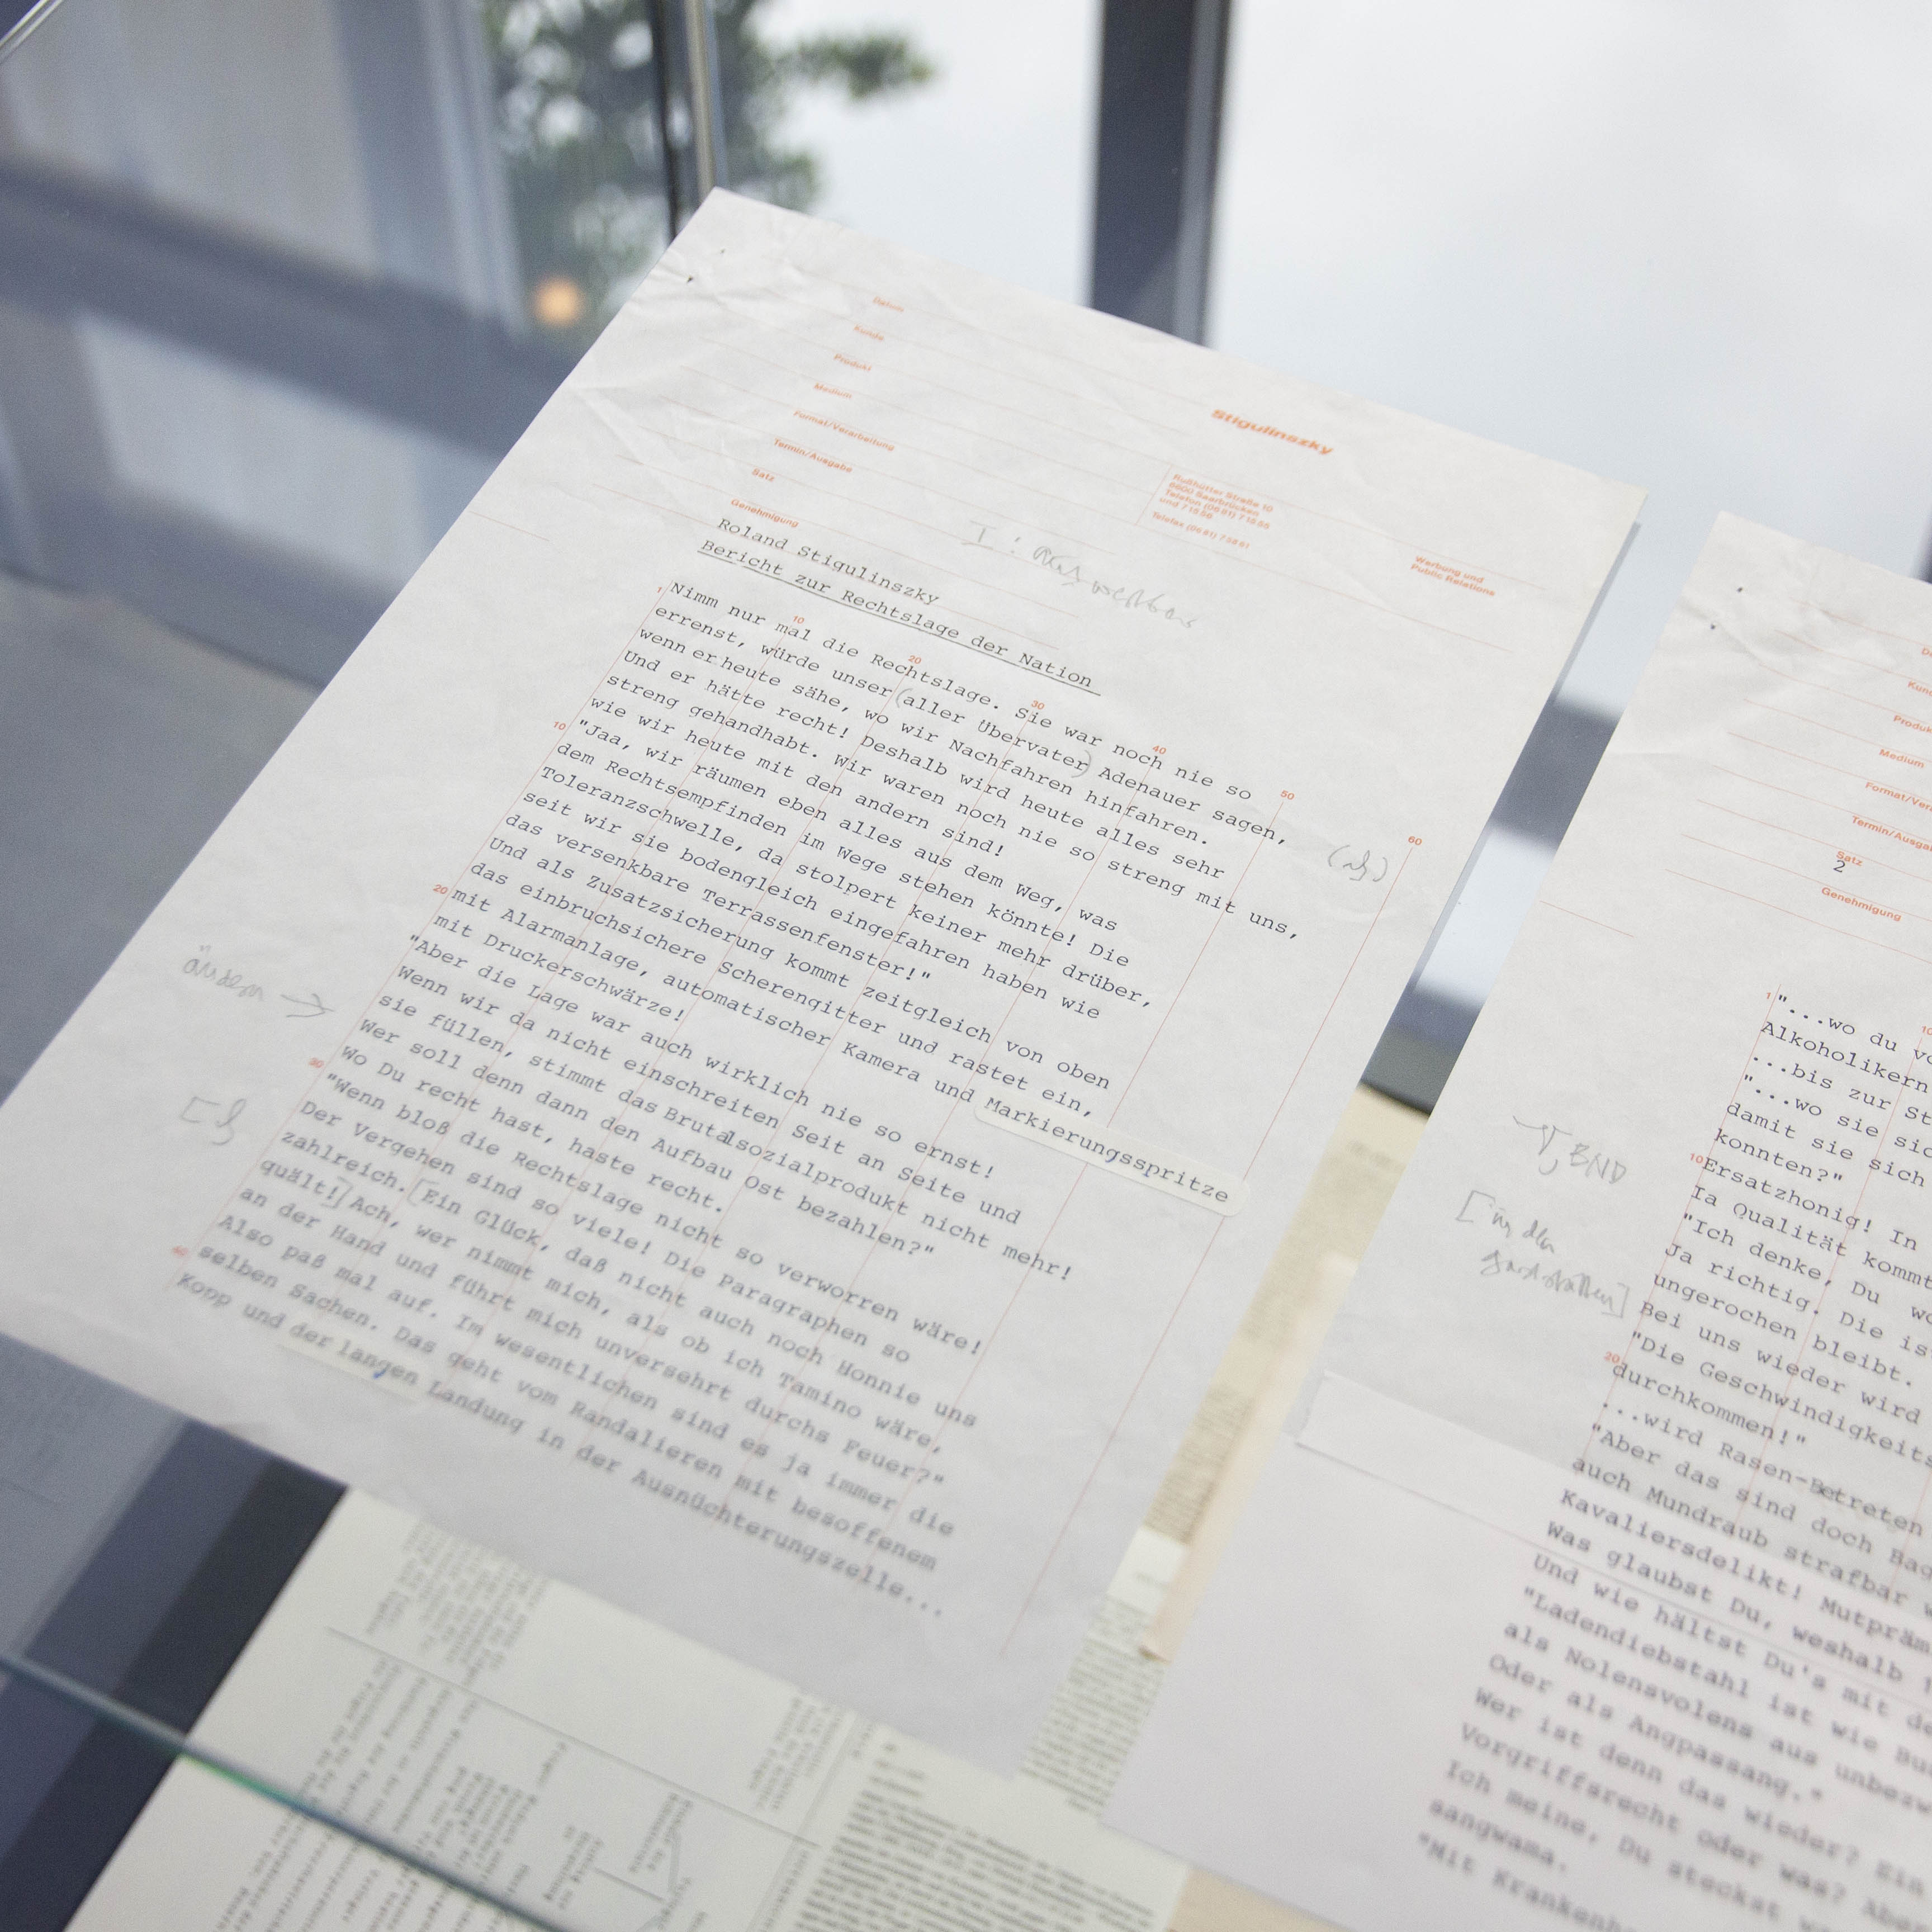 Datum
Kunde
Produkt
Medium
Format/Verarbeitung
Termin/Ausgabe
Satz
Genehmigung
Stigulinszky
Rußhütter Straße 10
6600 Saarbrücken
Telefon (06 81) 7 15 55
und 7 15 56
Werbung und
Public Relations
Roland Stigulinszky
Bericht zur Rechtslage der Nation
10
20
30
40
50
60
1
Nimm nur mal die Rechtslage. Sie war noch nie so
errenst, würde unser (aller Übervater) Adenauer sagen,
wenn er heute sähe, wo wir Nachfahren hinfahren.
Und er hätte recht! Deshalb wird heute alles sehr
streng gehandhabt. Wir waren noch nie so streng mit uns,
wie wir heute mit den andern sind!
10
"Jaa, wir räumen eben alles aus dem Weg, was
dem Rechtsempfinden im Wege stehen könnte! Die
Toleranzschwelle, da stolpert keiner mehr drüber,
seit wir sie bodengleich eingefahren haben wie
das versenkbare Terrassenfenster!"
Und als Zusatzsicherung kommt zeitgleich von oben
das einbruchsichere Scherengitter und rastet ein,
20
mit Alarmanlage, automatischer Kamera und Markierungsspritze
mit Druckerschwärze!
"Aber die Lage war auch wirklich nie so ernst!
Wenn wir da nicht einschreiten Seit an Seite und
sie füllen, stimmt das Brutalsozialprodukt nicht mehr!
Wer soll denn dann den Aufbau Ost bezahlen?"
Wo Du recht hast, haste recht.
30
"Wenn bloß die Rechtslage nicht so verworren wäre!
Der Vergehen sind so viele! Die Paragraphen so
zahlreich. [Ein Glück, daß nicht auch noch Honnie uns
quält!] Ach, wer nimmt mich, als ob ich Tamino wäre,
an der Hand und führt mich unversehrt durchs Feuer?"
Also paß mal auf. Im wesentlichen sind es ja immer die
selben Sachen. Das geht vom Randalieren mit besoffenem
40
Kopp und der langen Landung in der Ausnüchterungszelle...
ändern →
Kund
Produk
Medium
Format/Vera
Termin/Ausga
Satz
2
Genehmigung
1
10
"...wo du vo
Alkoholikern
...bis zur St
"...wo sie sic
damit sie sich
konnten?"
10
Ersatzhonig! In
Ia Qualität kommt
"Ich denke, Du wo
Ja richtig. Die is
ungerochen bleibt.
Bei uns wieder wird
"Die Geschwindigkeits
20
durchkommen!"
...wird Rasen-Betreten
"Aber das sind doch Bag
auch Mundraub strafbar w
Kavaliersdelikt! Mutpräm
Was glaubst Du, weshalb
Und wie hältst Du's mit de
"Ladendiebstahl ist wie Bu
als Nolensvolens aus unbezw
Oder als Angpassang."
Wer ist denn das wieder? Ein
Vorgriffsrecht oder was? Abe
Ich meine, Du steckst
sangwama.
"Mit Krankenh
BND
[in den
Gaststätten]